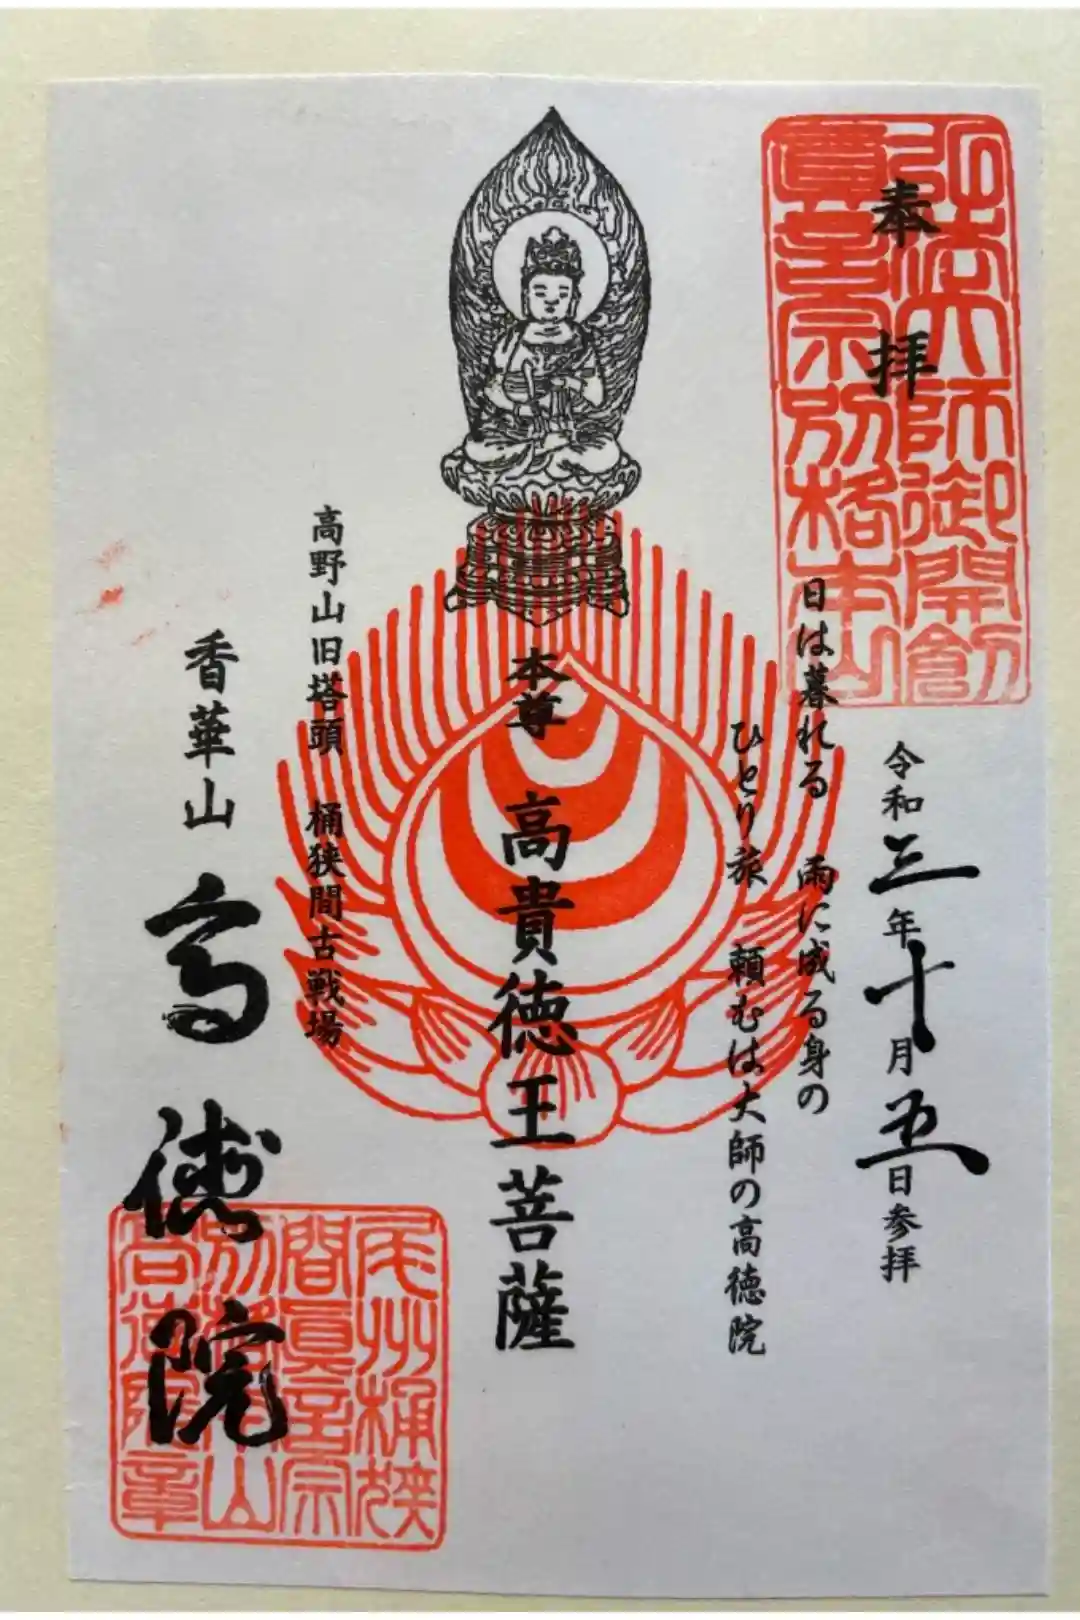 弘法大師御開創
眞言宗別格本山
奉拝
令和三年十月五日参拝
日は暮れる 雨に成る身の
ひとり旅 頼むは大師の高徳院
本尊 高貴徳王菩薩
高野山旧塔頭 桶狭間古戦場
香華山 高徳院
尾州桶狭
間眞言宗
別格本山
高徳院章